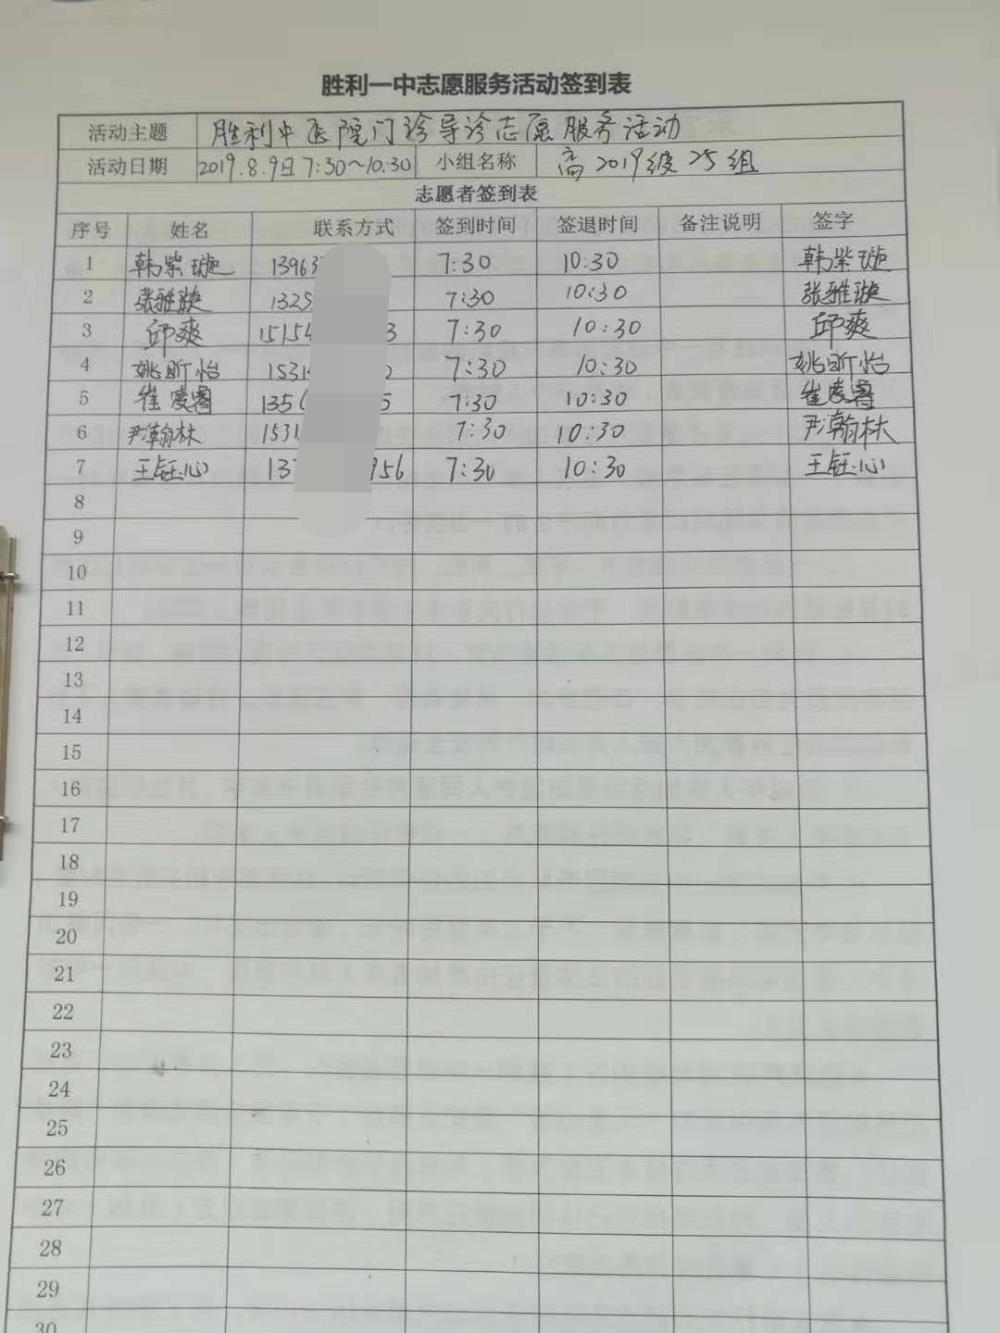 胜利一中志愿服务活动签到表
活动主题 胜利中医院门诊导诊志愿服务活动
活动日期 2019.8.9日 7:30~10:30 小组名称 高2019级25组
志愿者签到表
序号 姓名 联系方式 签到时间 签退时间 备注说明 签字
1 韩紫璇 13963 7:30 10:30 韩紫璇
2 张雅璇 1325 7:30 10:30 张雅璇
3 邱爽 15154 3 7:30 10:30 邱爽
4 姚昕怡 1531 7:30 10:30 姚昕怡
5 崔凌睿 1350 5 7:30 10:30 崔凌睿
6 尹翰林 1531 7:30 10:30 尹翰林
7 王钰心 137 956 7:30 10:30 王钰心
8
9
10
11
12
13
14
15
16
17
18
19
20
21
22
23
24
25
26
27
28
29
30